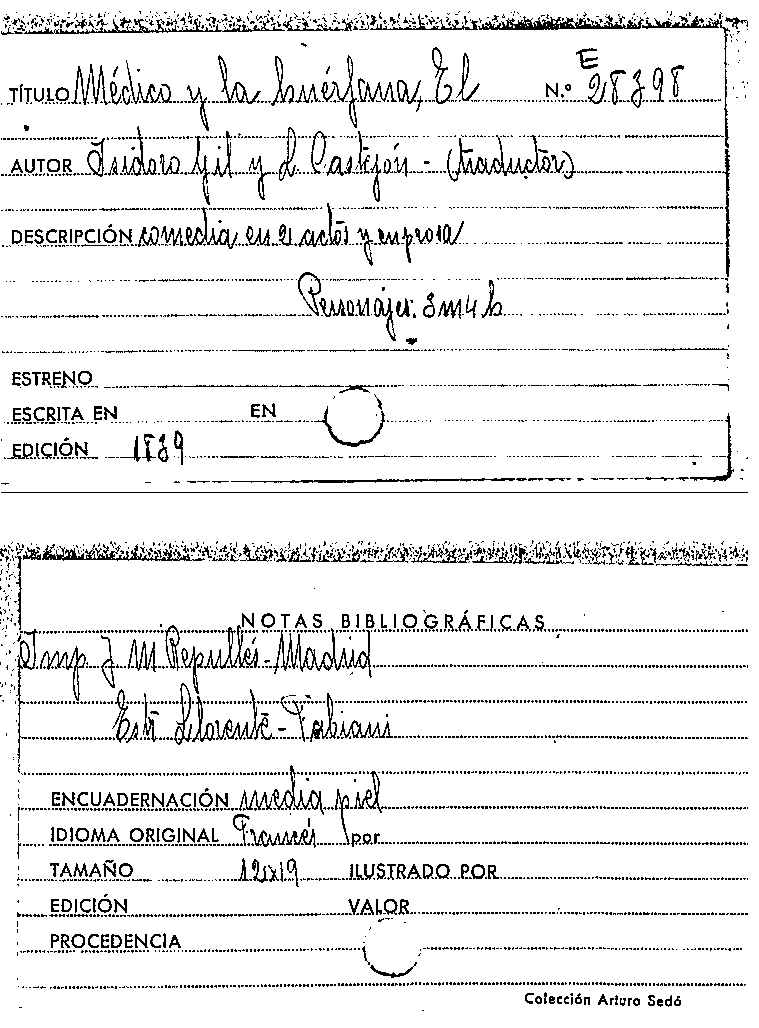 E
TÍTULO Médico y la huérfana, El N.º 28398
AUTOR Isidoro Gil y L Castejón - (traductor)
DESCRIPCIÓN comedia en 2 actos y en prosa
Personajes: 3m4h
ESTRENO
ESCRITA EN EN
EDICIÓN 1839
NOTAS BIBLIOGRÁFICAS
Imp J M Repullés - Madrid
Llorente - Fabiani
ENCUADERNACIÓN media piel
IDIOMA ORIGINAL Francés por
TAMAÑO 12x19 ILUSTRADO POR
EDICIÓN VALOR
PROCEDENCIA
Colección Arturo Sedó